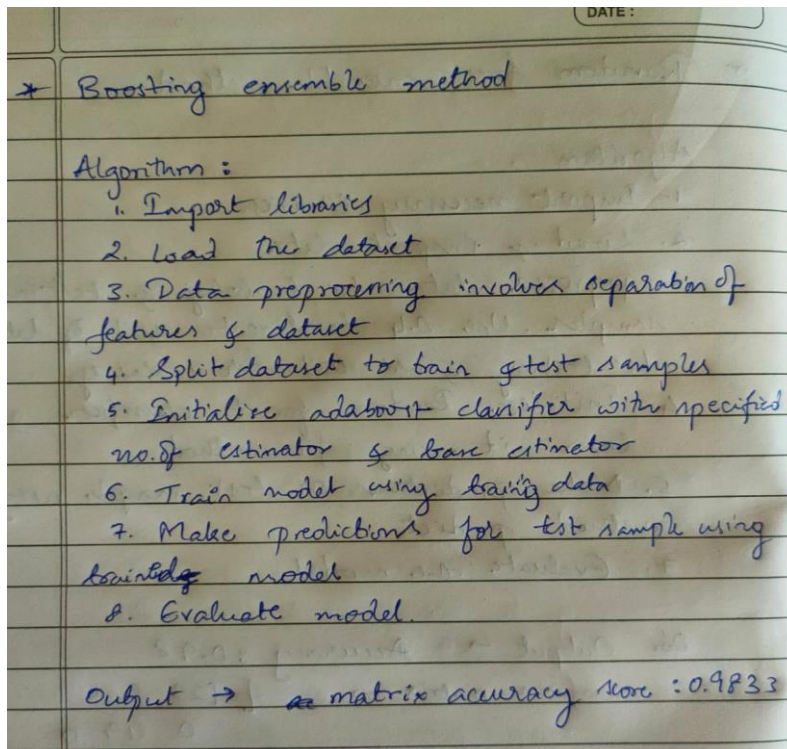 DATE :
* Boosting ensemble method
Algorithm :
1. Import libraries
2. Load the dataset
3. Data preprocessing involves separation of
features & dataset
4. Split dataset to train & test samples
5. Initialise adaboost classifier with specified
no. of estimator & base estimator
6. Train model using traing data
7. Make predictions for test sample using
trained model
8. Evaluate model.
Output → matrix accuracy score : 0.9833